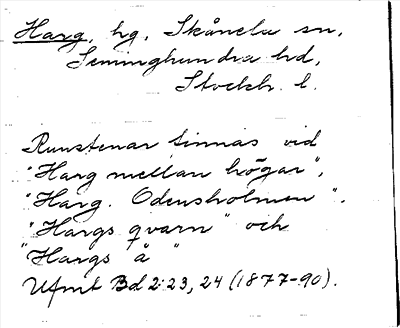 Harg, hg, Skånela sn,
Seminghundra hd,
Stockh. l.
Runstenar finnas vid
"Harg mellan högar",
"Harg. Odensholmen".
"Hargs qvarn" och
"Hargs å"
Ufmt Bd 2:23, 24 (1877-90).